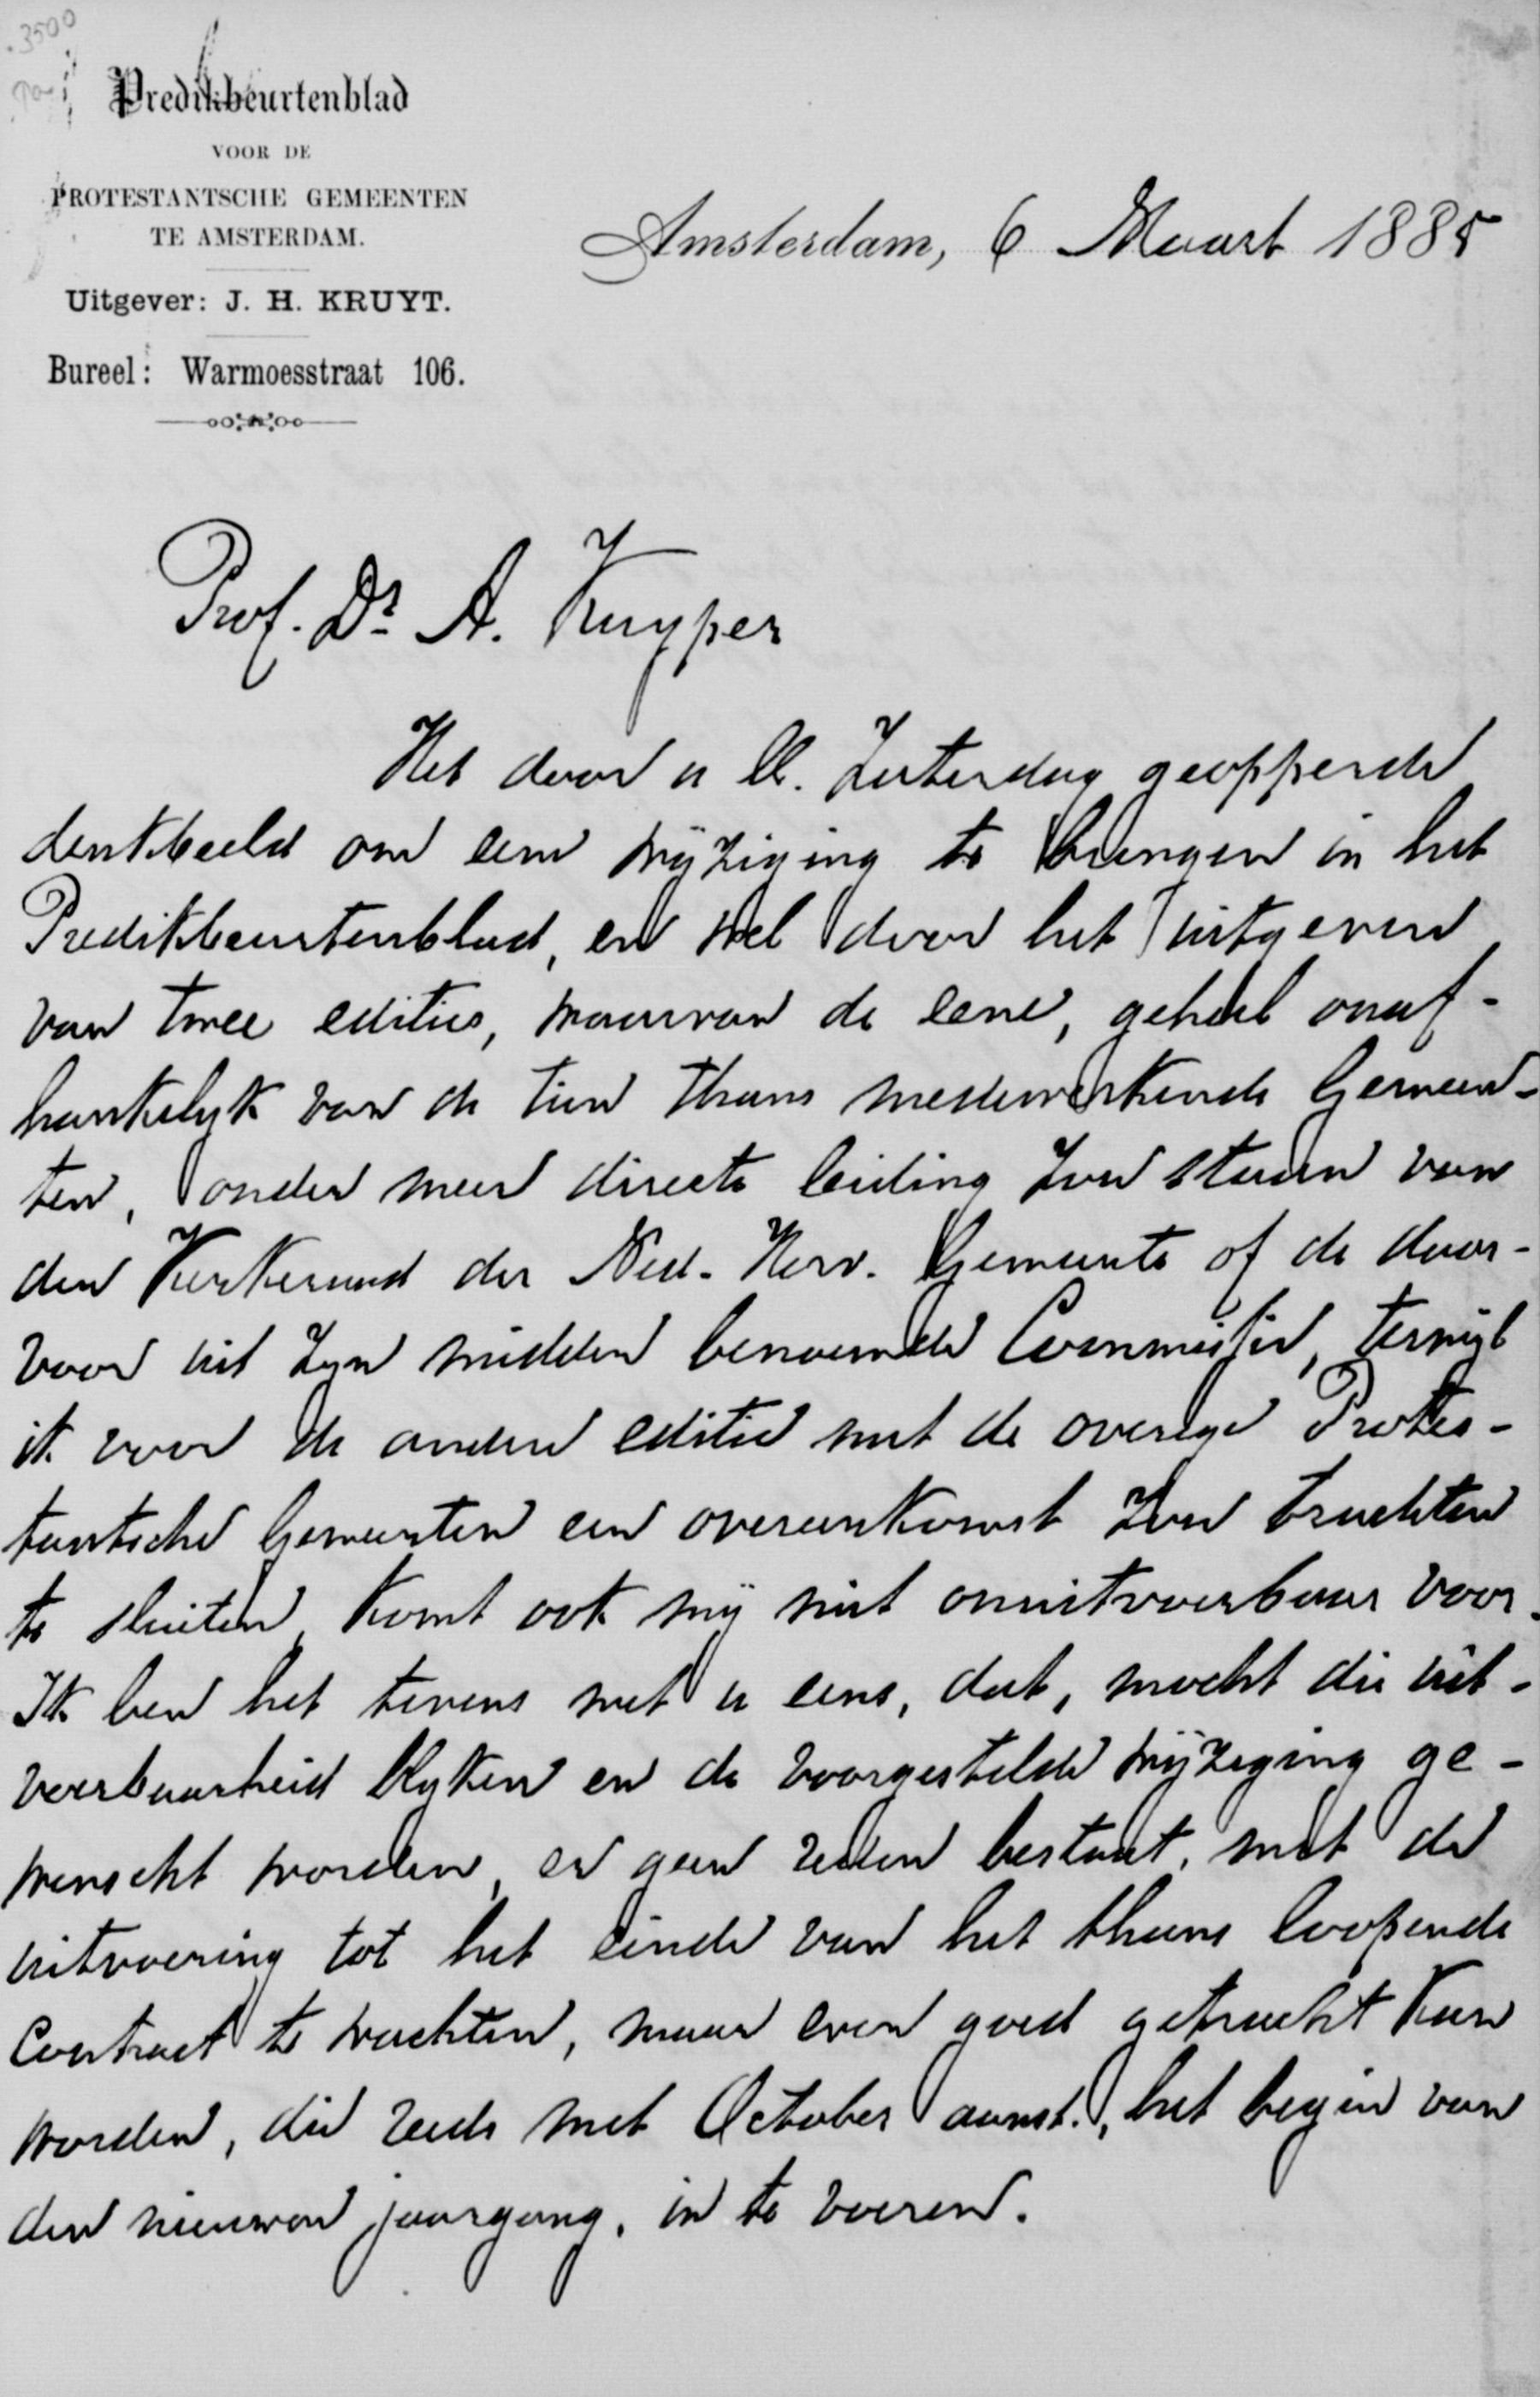 3500
Predikbeurtenblad
VOOR DE
PROTESTANTSCHE GEMEENTEN
TE AMSTERDAM.
Uitgever: J. H. KRUYT.
Bureel: Warmoesstraat 106.
Amsterdam, 6 Maart 1885
Prof. Dr. A. Kuyper
Het door u ll. Zaterdag geopperde
denkbeeld om eene wijziging te brengen in het
Predikbeurtenblad, en wel door het uitgeven
van twee edities, waarvan de eene, geheel onaf-
hankelijk van de tien thans medewerkende Gemeen-
ten, onder meer directe leiding zou staan van
den Kerkeraad der Ned. Herv. Gemeente of de daar-
voor uit zyn midden benoemde Commissie, terwijl
ik voor de andere editie met de overige Protes-
tantsche Gemeenten een overeenkomst zou trachten
te sluiten, komt ook mij niet onuitvoerbaar voor.
Ik ben het tevens met u eens, dat, mocht die uit-
voerbaarheid blyken en de voorgestelde wijziging ge-
wenscht worden, er geen reden bestaat, met de
uitvoering tot het einde van het thans loopende
Contract te wachten, maar even goed getracht kan
worden, die reeds met October aanst., het begin van
den nieuwen jaargang, in te voeren.